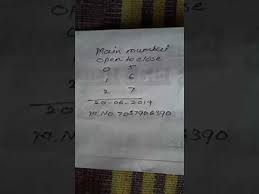 Main mumbai
open to close
0 5
1 6
2 7
20-06-2019
M.No.7057966390